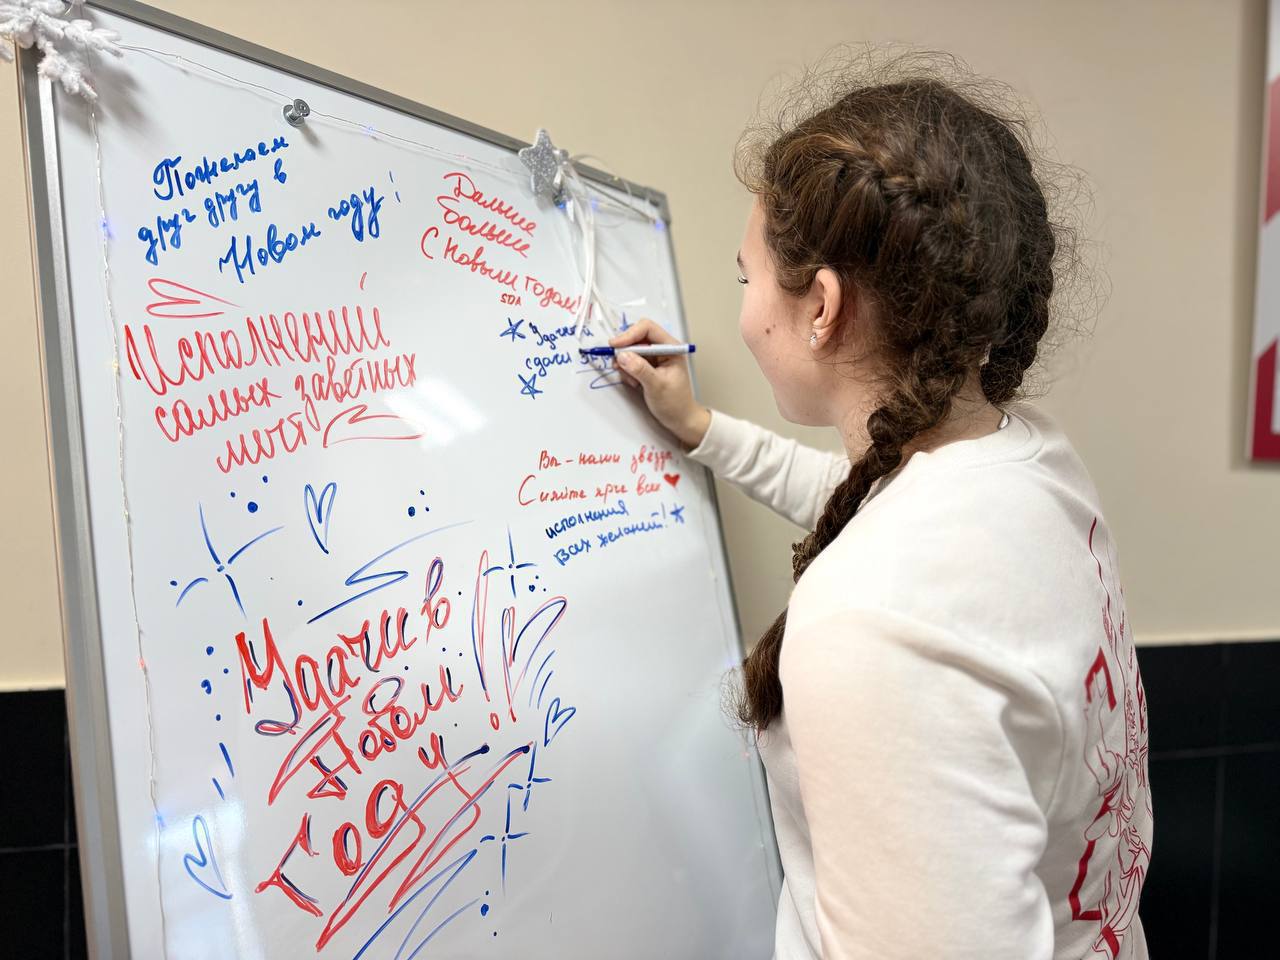 Пожелаем
друг другу в
Новом году!
Исполнений
самых заветных
мечт
Дальше
больше
С Новым годом!
SDA
Удачной
сдачи
Вы - наши звёзда,
Сияйте ярче всех
исполнения
всех желаний!
Удачи в
Новом
Году